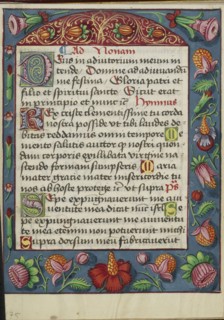 Ad Nonam
Deus in adiutorium meum in
tende Domine ad adiuvandū
me festina Gloria patri et
filio et spiritui sancto Sicut erat
in principio et nunc Hymnus
Rex criste clementissime tu corda
nostra posside vt tibi laudes de
bitas reddamus omni tempore
mento salutis auctor q nostri quon
dam corporis ex illibata virgine na
scendo formam sumpseris Maria
mater gratie mater misericordie tu
nos ab hoste protege vt supra ps
Sepe expugnaverunt me a iu
ventute mea dicat nūc Se
pe expugnaverunt me a iuventu
te mea etenim non potuerunt michi
Supra dorsum meum fabricaverunt